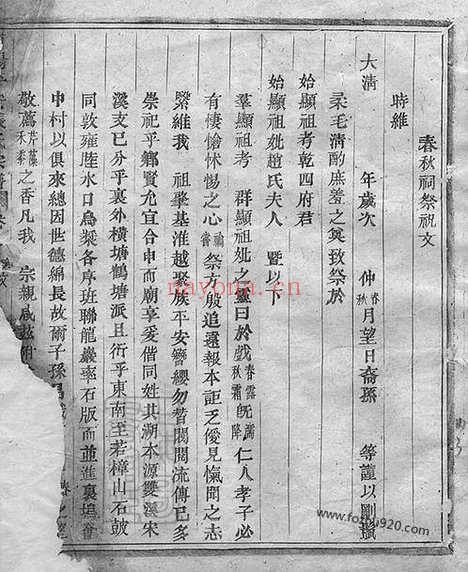 春秋祠祭祝文
時維
大清 年歲次 仲春秋月望日裔孫 等謹以剛鬣
柔毛清酌庶羞之奠致祭於
始顯祖考乾四府君
始顯祖妣趙氏夫人 暨以下
羣顯祖考 群顯祖妣之靈曰於戲春露既濡秋霜既降仁人孝子必
有悽愴怵惕之心禴嘗祭方殷追遠報本詎乏僾見愾聞之志
繄維我 祖肇基淮越聚族平安簪纓勿替閥閱流傳已多
崇祀乎鄉賢允宜合申而廟享爰偕同姓共溯本源雙溪宋
溪支已分乎裏外橫塘鶴塘派且衍乎東南至若樟山石鼓
同敦雍睦水口烏漿各序班聯龍巖率石版而並進裏塢會
中村以俱來總因世德綿長故爾子孫昌
敬薦芹藻禾黍之香凡我 宗親咸茲
nayona.cn
zufu920.com